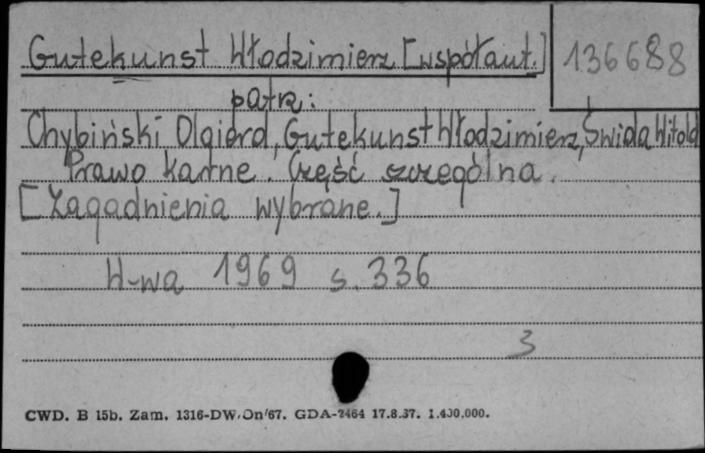 Gutekunst Włodzimierz [współaut.] 136688
patrz:
Chybiński Olgierd, Gutekunst Włodzimierz, Świda Witold
Prawo karne. Część szczególna.
[Zagadnienia wybrane.]
W-wa 1969 s. 336
3
CWD. B 15b. Zam. 1316-DW/On/67. GDA-2464 17.8.37. 1.400.000.